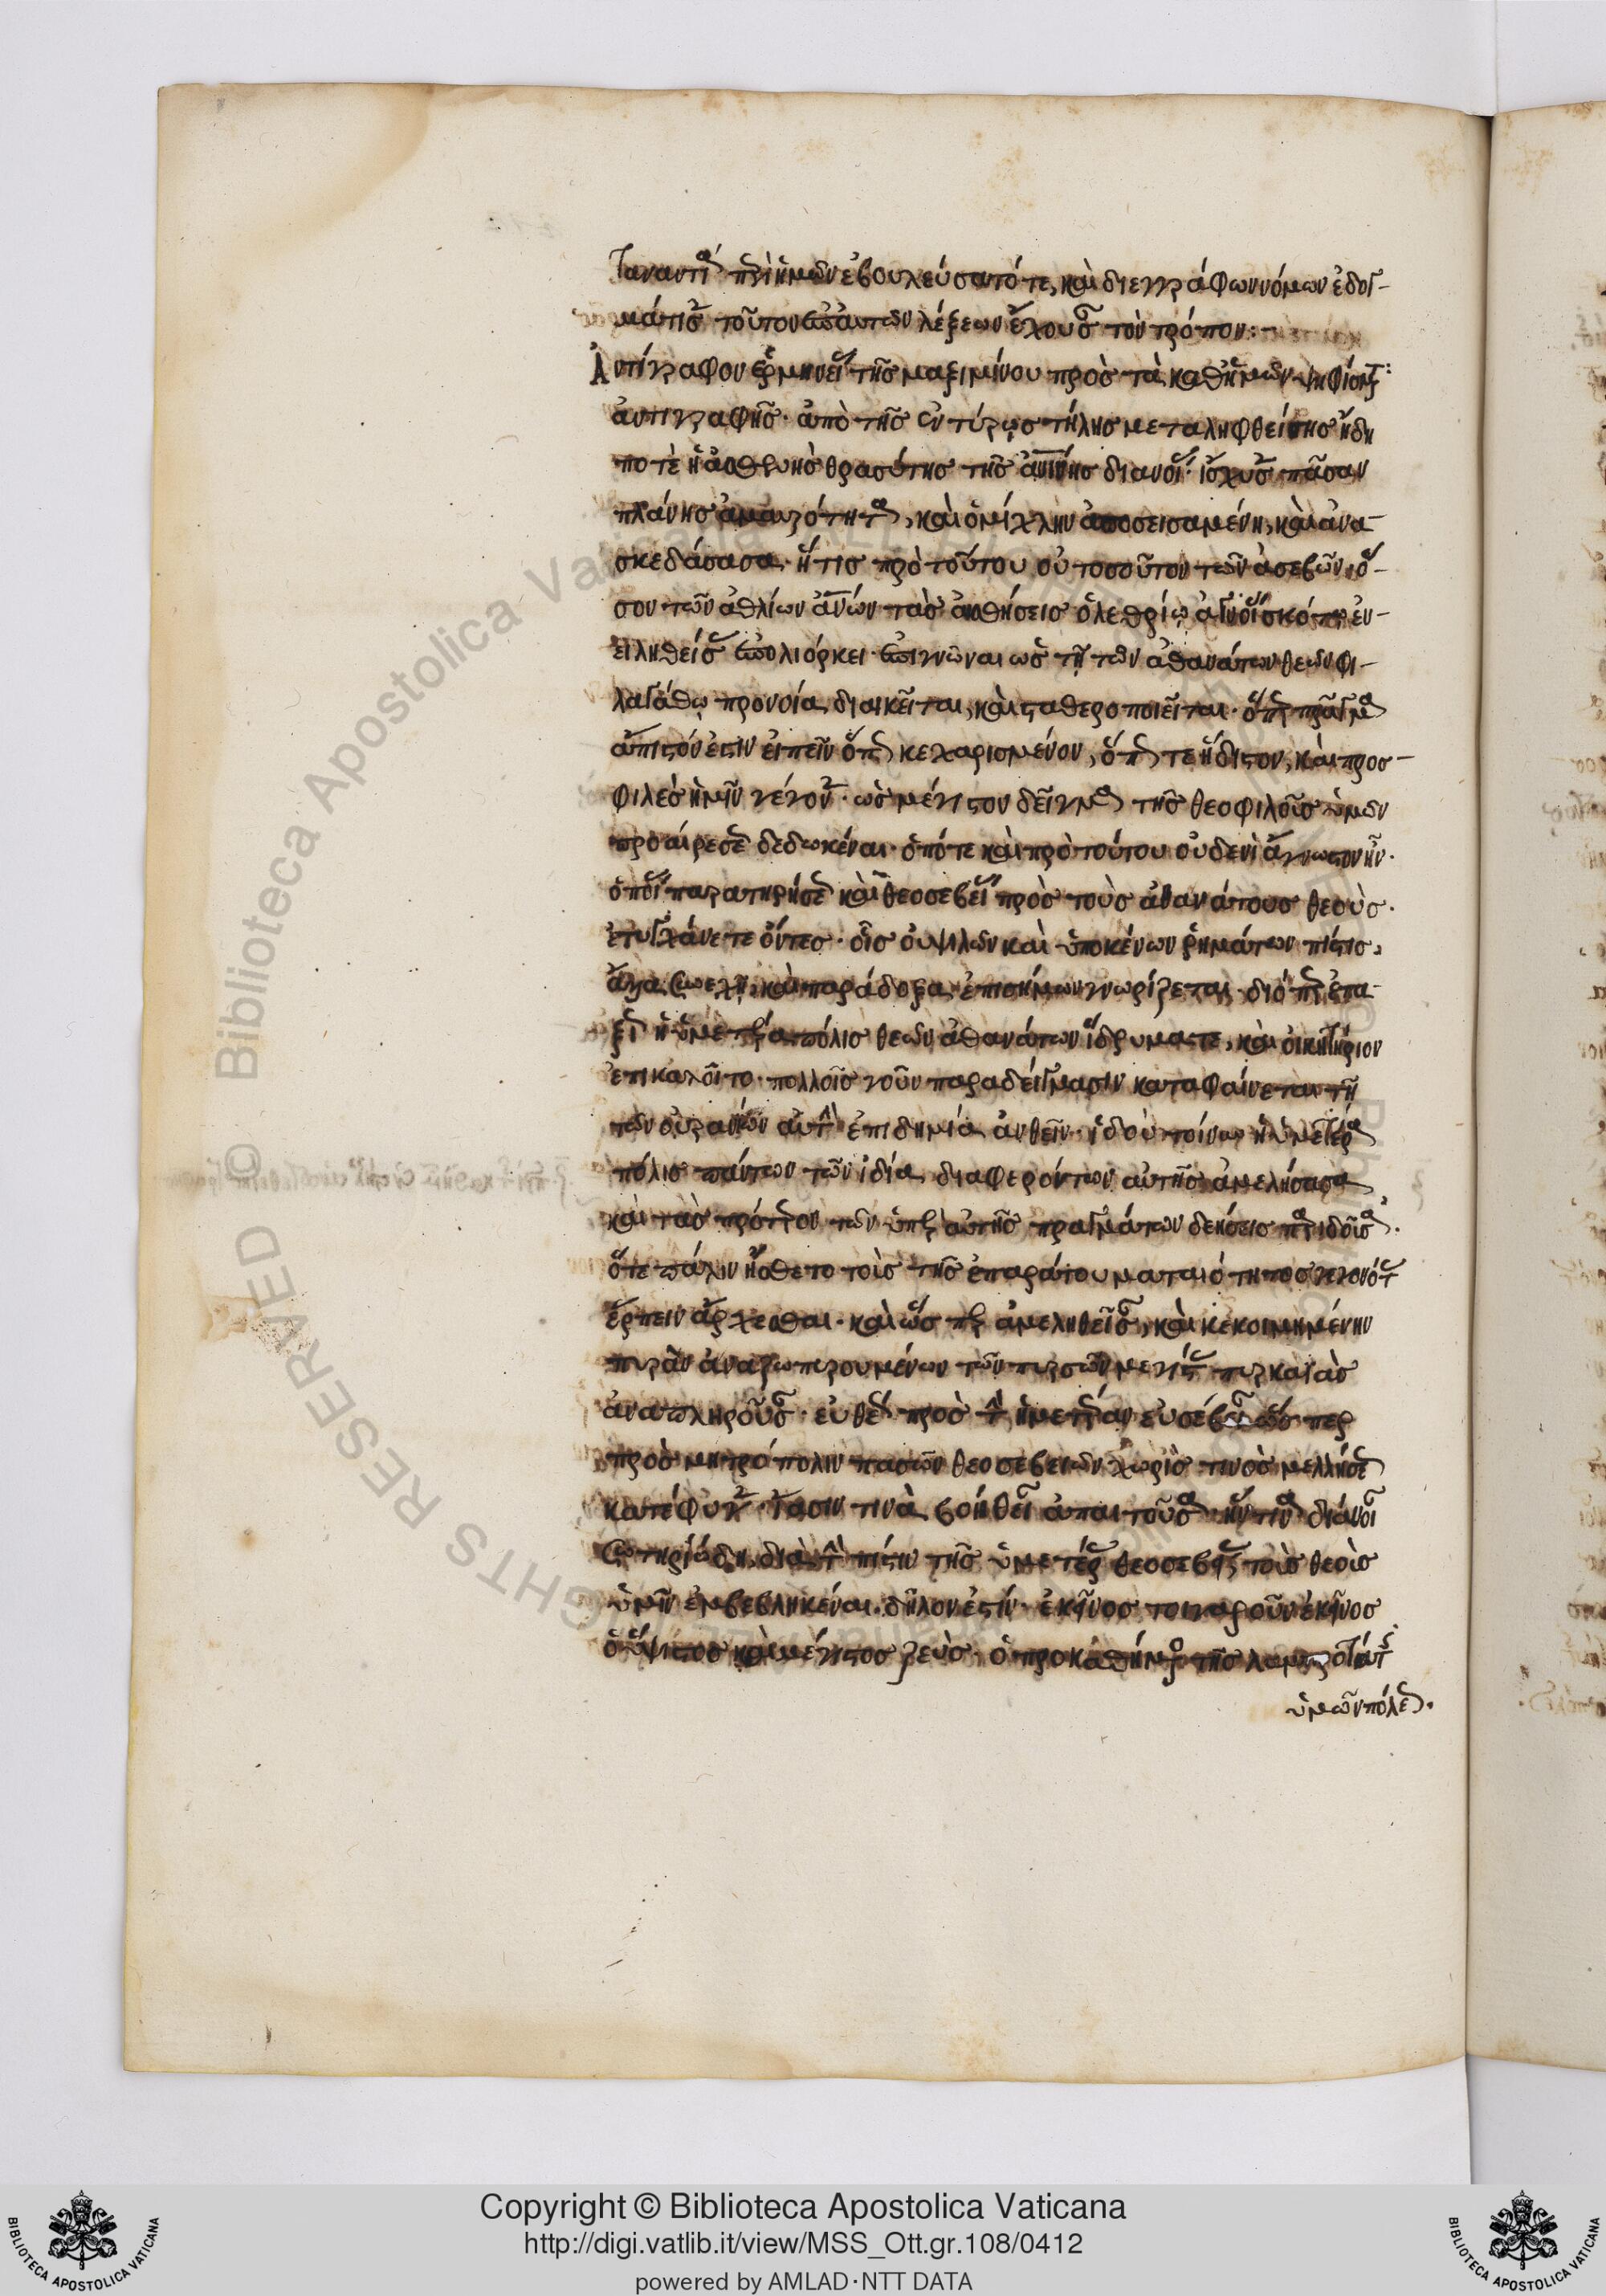 τἀναντία περὶ ἡμῶν ἐβουλεύσατό τε, καὶ δι' ἐγγράφων νόμων ἐδογ-
μάτισε τοῦτον ἐπ' αὐτῶν λέξεων ἔχουσι τὸν τρόπον:-
Ἀντίγραφον ἑρμηνείας τῆς μαξιμίνου πρὸς τὰ καθ' ἡμῶν ψηφίσματα:
ἀντιγραφῆς· ἀπὸ τῆς ἐν τύρῳ στήλης μεταληφθείσης ἤδη
ποτὲ ἡ ἀσθενὴς θρασύτης τῆς ἀνθρωπίνης διανοίας· ἴσχυσε πᾶσαν
πλάνης ἀμαυρότητα, καὶ ὀμίχλην ἀποσεισαμένη, καὶ ἀνα-
σκεδάσασα· ἥτις πρὸ τούτου οὐ τοσοῦτον τῶν ἀσεβῶν ὅ-
σον τῶν ἀθλίων ἀνθρώπων τὰς αἰσθήσεις ὀλεθρίῳ ἀγνοίας σκότῳ ἐν-
ειληθείσας ἐπολιόρκει· ἐπιγνῶναι ὡς τῇ τῶν ἀθανάτων θεῶν φι-
λαγάθῳ προνοίᾳ διοικεῖται, καὶ σταθεροποιεῖται· ὅπερ πρᾶγμα
ἄπιστόν ἐστιν εἰπεῖν ὅπως κεχαρισμένον, ὅπως τε ἥδιστον, καὶ προσ-
φιλὲς ἡμῖν γέγονεν· ὡς μέγιστον δεῖγμα τῆς θεοφιλοῦς ὑμῶν
προαιρέσεως δεδωκέναι· ὁπότε καὶ πρὸ τούτου οὐδενὶ ἄγνωστον ἦν·
ὁποίας παρατηρήσεως καὶ θεοσεβείας πρὸς τοὺς ἀθανάτους θεοὺς·
ἐτυγχάνετε ὄντες· οἷς οὐ ψιλῶν καὶ ὑποκένων ῥημάτων πίστις,
ἀλλὰ συνεχῆ καὶ παράδοξα ἐπισήμων γνωρίζεται· διόπερ ἐπα-
ξίως ἡ ὑμετέρα πόλις θεῶν ἀθανάτων ἵδρυμά τε, καὶ οἰκητήριον
ἐπικαλοῖτο· πολλοῖς γοῦν παραδείγμασιν καταφαίνεται τῇ
τῶν οὐρανίων αὐτὴν ἐπιδημίᾳ ἀνθεῖν· ἰδοὺ τοίνυν ἡ ὑμετέρα
πόλις πάντων τῶν ἰδίᾳ διαφερόντων αὐτῆς ἀμελήσασα
καὶ τὰς πρότερον τῶν ὑπὲρ αὐτῆς πραγμάτων δεήσεις περιιδοῦσα·
ὅτε πάλιν ᾔσθετο τοῖς τῆς ἐπαράτου ματαιότητος γεγονότας
ἕρπειν ἄρχεσθαι· καὶ ὥσπερ ἀμεληθεῖσαν, καὶ κεκοιμημένην
πυρὰν ἀναζωπυρουμένων τῶν πυρσῶν μεγίστας πυρκαϊὰς
ἀναπληροῦσαν· εὐθέως πρὸς τὴν ἡμετέραν εὐσέβειαν ὥσπερ
πρὸς μητρόπολιν πασῶν θεοσεβειῶν χωρίς τινος μελλήσεως
κατέφυγεν· ἴασίν τινα βοήθειαν ἀπαιτοῦσα· ἥντινα διάνοιαν
σωτηριώδη διὰ τὴν πίστιν τῆς ὑμετέρας θεοσεβείας τοῖς θεοῖς
ὑμῖν ἐμβεβληκέναι δῆλον ἐστίν· ἐκεῖνος τοιγαροῦν ἐκεῖνος
ὁ ὕψιστος καὶ μέγιστος ζεὺς· ὁ προκαθήμενος τῆς λαμπροτάτης
ὑμῶν πόλεως.
Copyright © Biblioteca Apostolica Vaticana
http://digi.vatlib.it/view/MSS_Ott.gr.108/0412
powered by AMLAD·NTT DATA